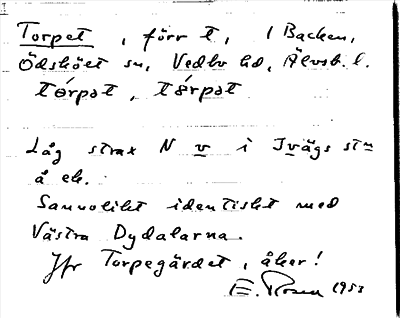 Torpet, förr t, 1 Backen,
Ödsköet sn, Vedbo hd, Älvsb. l.
tórpat, tórpat
Låg strax N v i Ivägs stn
å ek.
Sannolikt identiskt med
Västra Dydalarna.
Jfr Torpegärdet, åker!
E. Rosen 1953